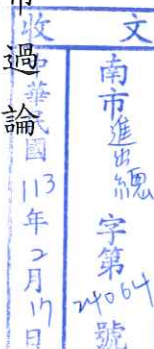 收文
南市進出總字第24064號
中華民國113年2月17日
過論